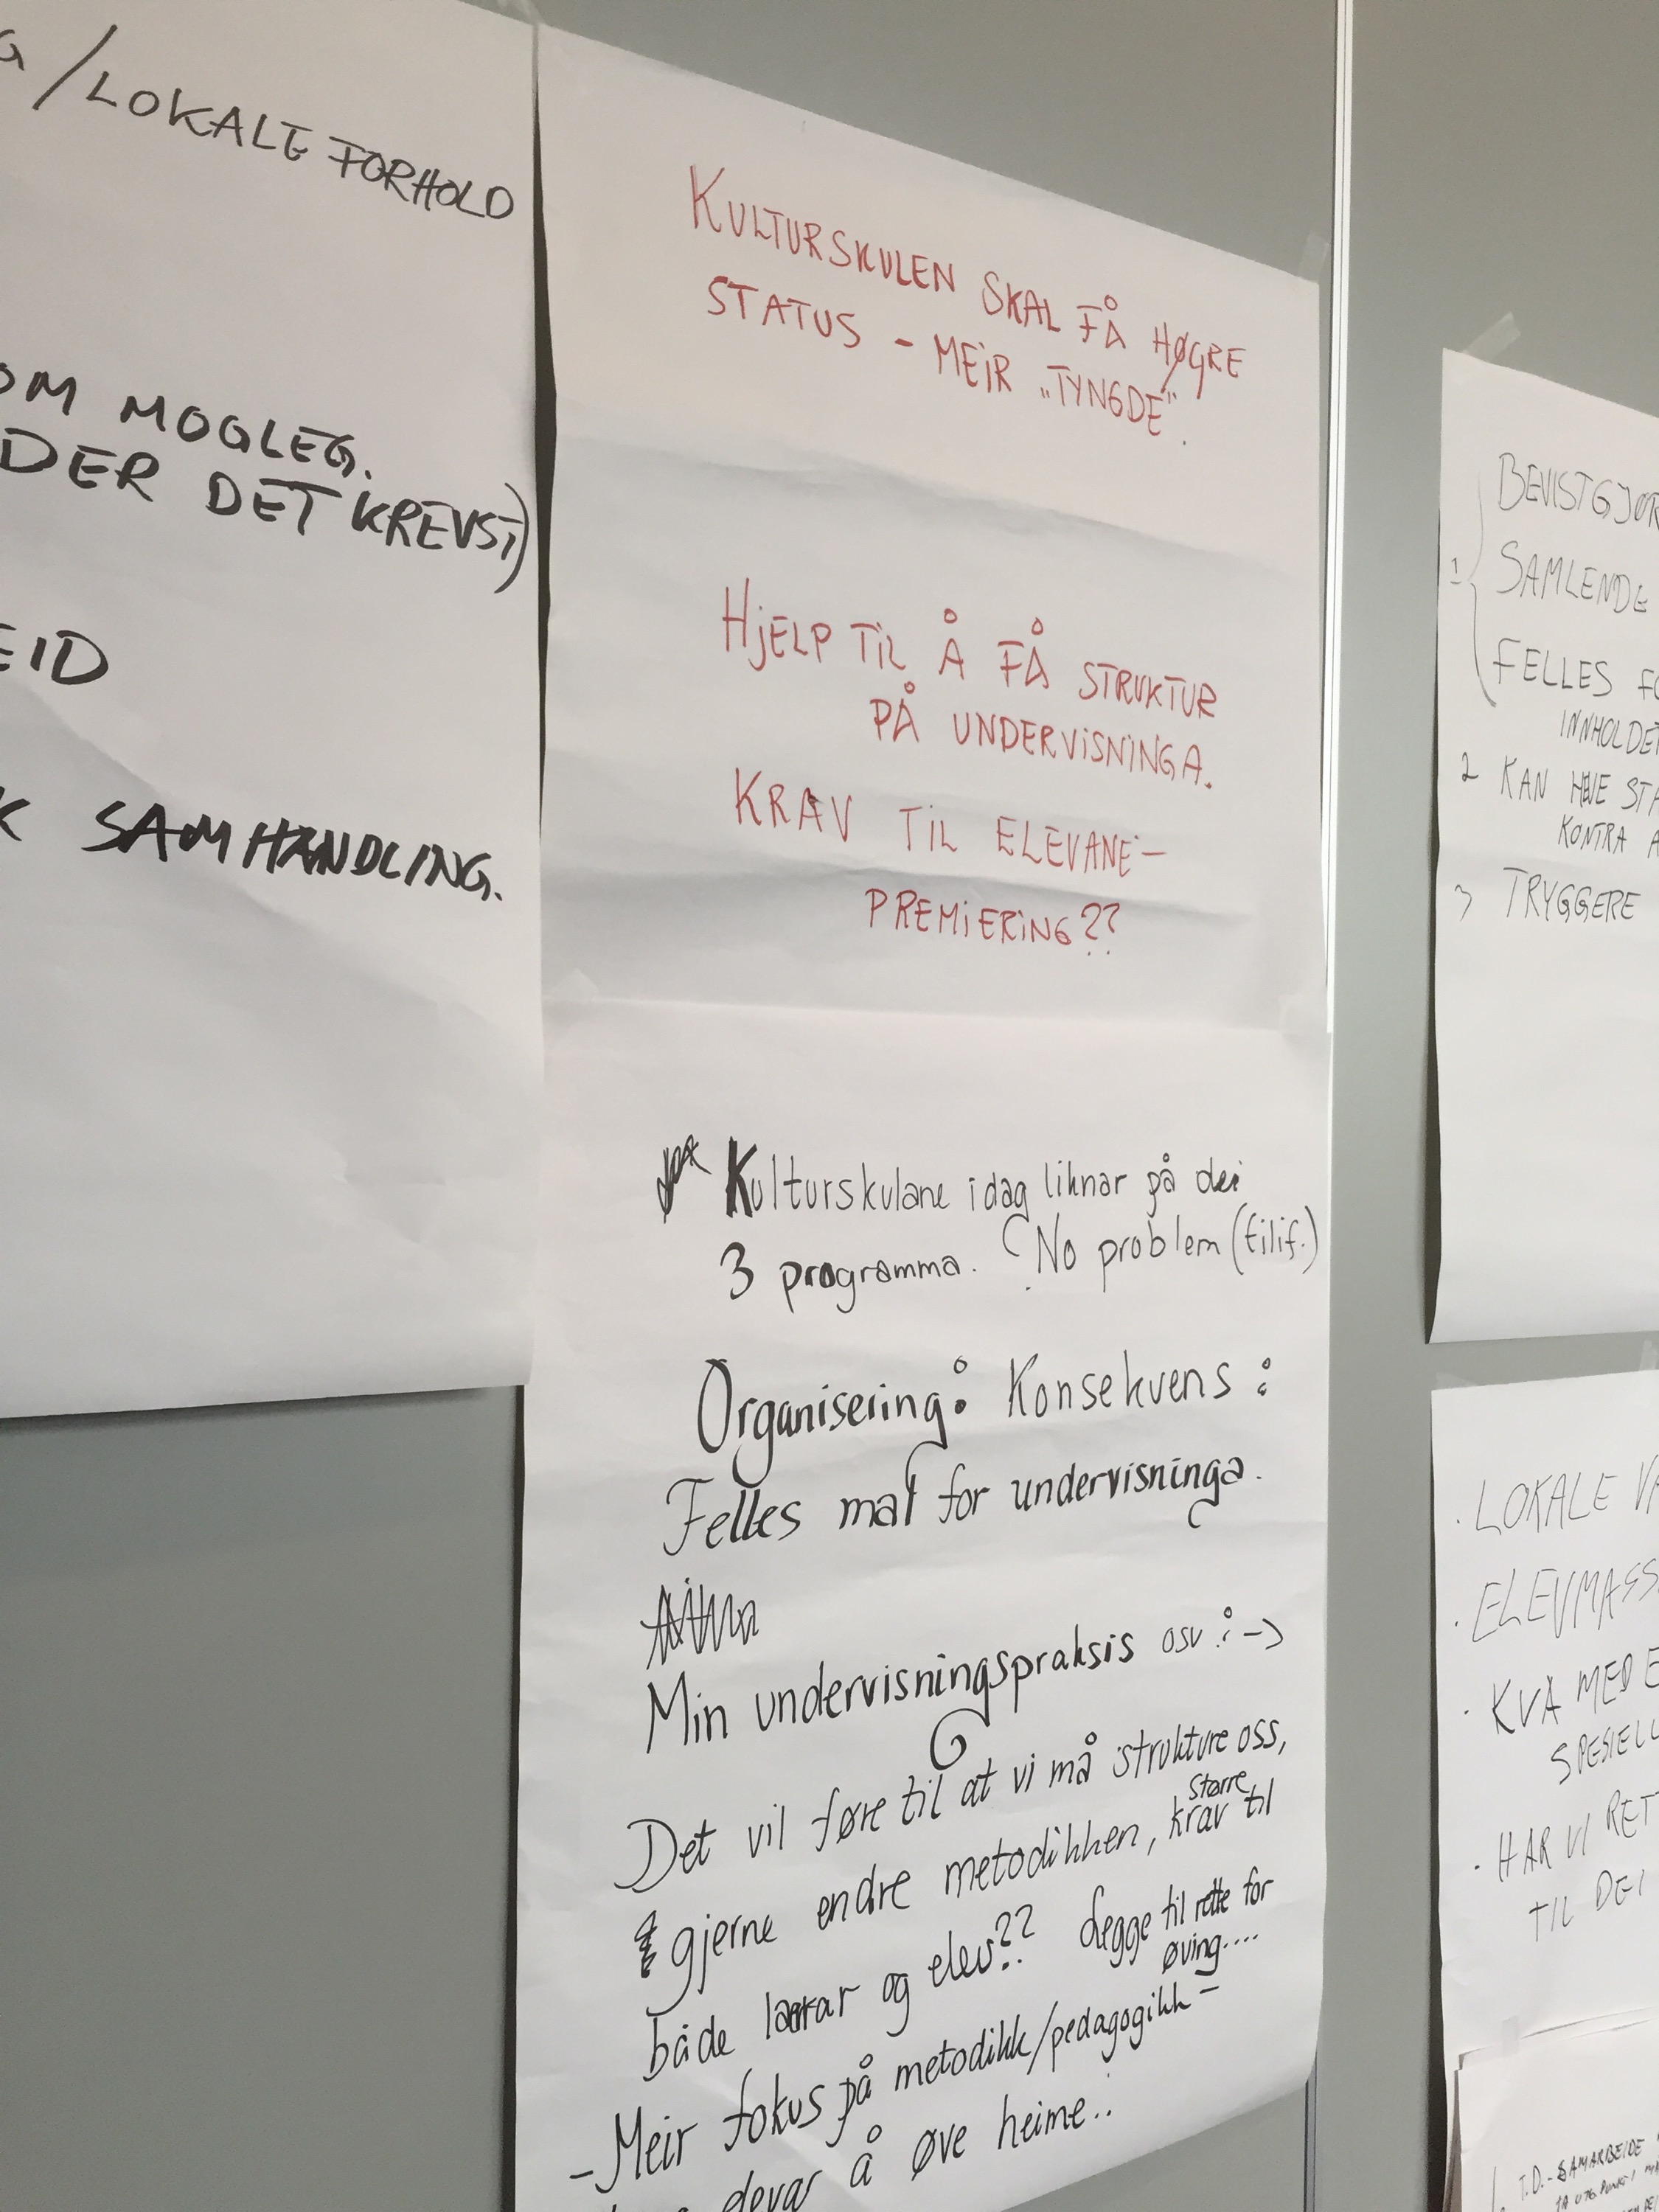 /LOKALE FORHOLD
OM MOGLEG.
DER DET KREVST)
EID
K SAMHANDLING.
KULTURSKULEN SKAL FÅ HØGRE
STATUS - MEIR „TYNGDE".
HJELP TIL Å FÅ STRUKTUR
PÅ UNDERVISNINGA.
KRAV TIL ELEVANE -
PREMIERING??
Kulturskulane idag liknar på dei
3 programma. No problem (tilif.)
Organisering: Konsekvens:
Felles mal for undervisninga.
Min undervisningspraksis osv: ->
Det vil føre til at vi må strukture oss,
gjerne endre metodikken, større krav til
både lærar og elev?? Legge til rette for
øving....
- Meir fokus på metodikk/pedagogikk -
elevar å øve heime..
BEVISTGJØR
1 SAMLENDE
FELLES FO
INNHOLDET
2 KAN HEVE STA
KONTRA A
3 TRYGGERE
· LOKALE VA
· ELEVMASS
· KVA MED E
SPESIELL
· HAR VI RETT
TIL DEI
T.D. - SAMARBEIDE